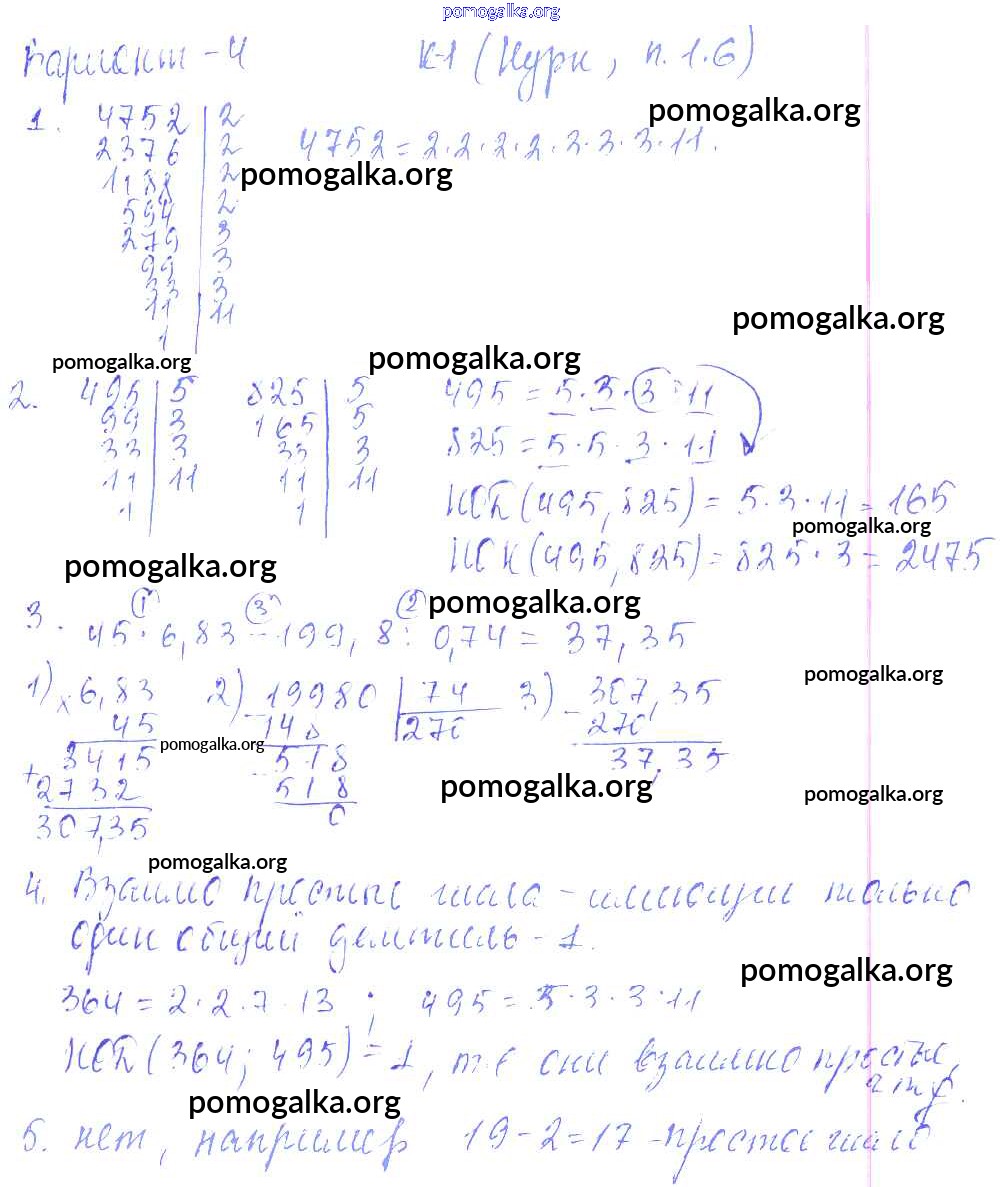 pomogalka.org
Вариант - 4 К-1 (Нурк, п. 1.6)
pomogalka.org
1. 4752 | 2 4752 = 2·2·2·2·3·3·3·11.
2376 | 2
pomogalka.org
1188 | 2
594 | 2
279 | 3
99 | 3
33 | 3
11 | 11
1
pomogalka.org
pomogalka.org pomogalka.org
2. 495 | 5 825 | 5 495 = 5·3·3·11
99 | 3 165 | 5
33 | 3 33 | 3 825 = 5·5·3·11
11 | 11 11 | 11
1 1
НОД (495, 825) = 5·3·11 = 165
pomogalka.org
НОК (495, 825) = 825·3 = 2475
pomogalka.org
1 3 2 pomogalka.org
3. 45·6,83 - 199,8 : 0,74 = 37,35
pomogalka.org
1) × 6,83 2) 19980 | 74 3) 307,35
45 148 | 270 - 270
3415 518 37,35
pomogalka.org
+ 2732 518
307,35 0
pomogalka.org pomogalka.org
pomogalka.org
4. Взаимно простые числа - имеющии только
один общий делитель - 1.
pomogalka.org
364 = 2·2·7·13 ; 495 = 5·3·3·11
НОД (364; 495) = 1, т.е они взаимно просты,
ч.т.д.
pomogalka.org
5. нет, например 19 - 2 = 17 - простое число